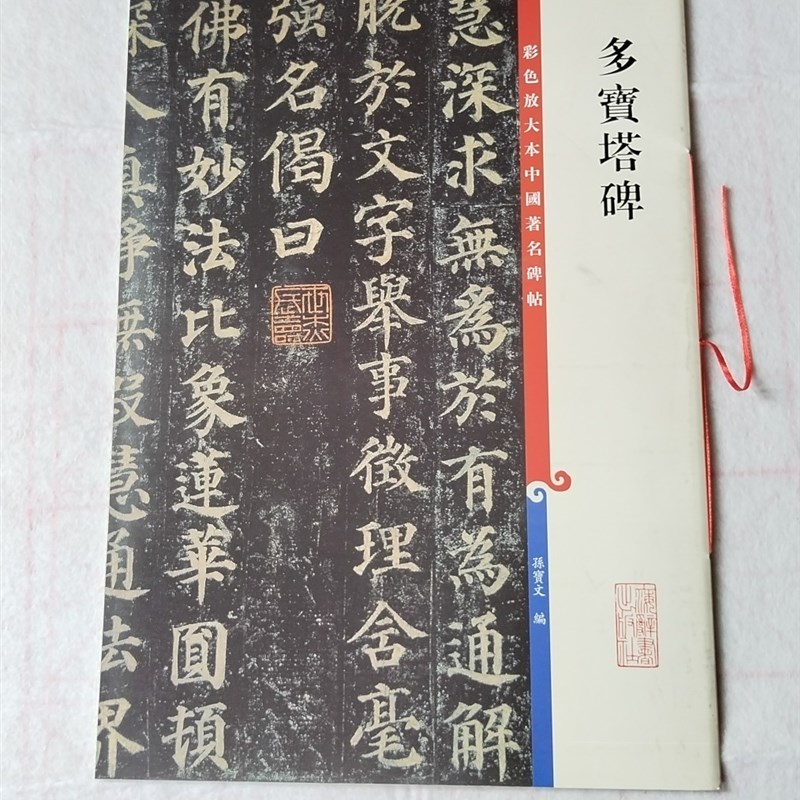 多寶塔碑
彩色放大本中國著名碑帖
孫寶文 編
慧深求無為於有為通解
脱於文字舉事徵理含毫
強名偈曰
佛有妙法比象蓮華圓頓
深入真淨無瑕慧通法界